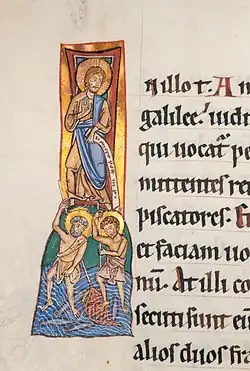 N illo t. A n
galilee. uidit
qui uocat̉ pe
mittentes re
piscatores. E
et faciam uo
nū. At illi co
secuti sunt eū
alios duos fra